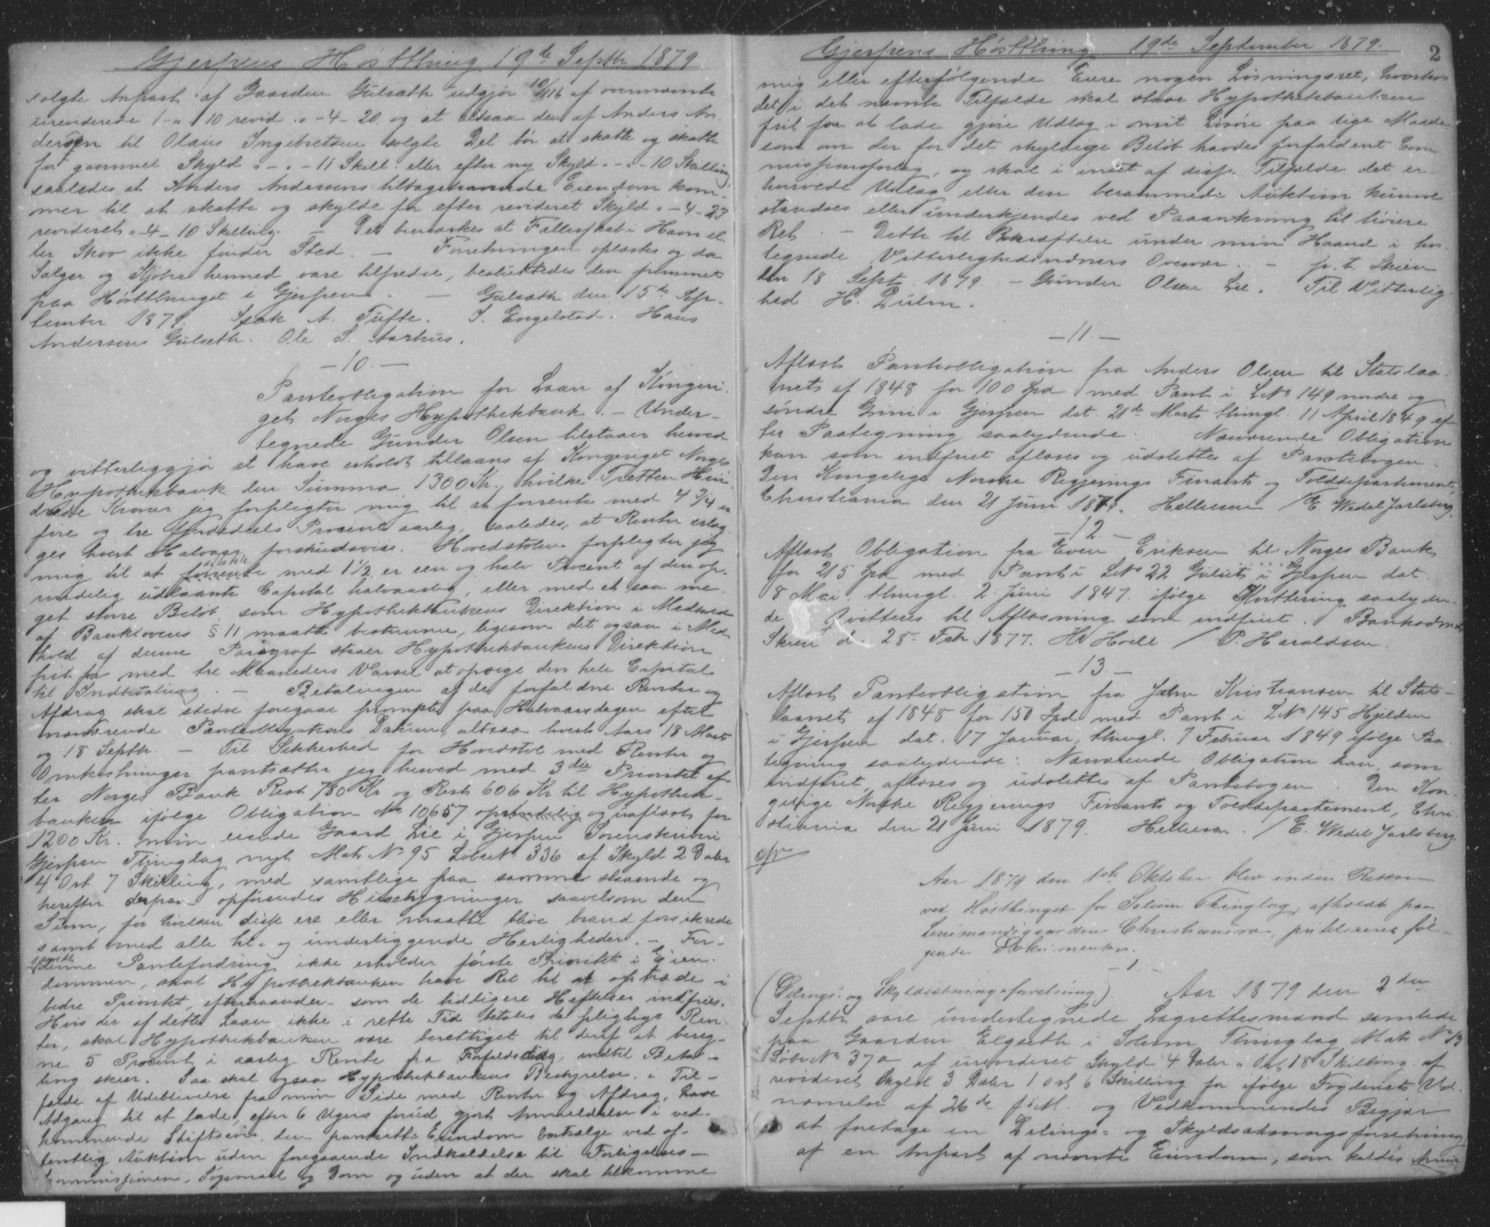 Gjerpens Høstthing 19de Septbr 1879
solgte Anpart af Gaarden Gulseth udgjør 10/116 af ovennævnte
urevideret 1 - " 10 revid. " - 4 - 20 og at altsaa den af Anders An
dersen til Olaus Ingebretsen solgte Del bør at skatte og skylde
for gammel Skyld " - " - 11 Skill eller efter ny Skyld " - " - 10 Skilling
saaledes at Anders Andersens tilbageværende Eiendom kom
mer til at skatte og skylde for efter revideret Skyld " - 4 - 23
revideret " 4 - 10 Skilling - Det bemærkes at Fællesskab i Havn el
ler Skov ikke finder Sted. - Forretningen oplæstes og da
Sælger og Kjøber hermed vare tilfredse, besluttedes den fremmet
paa Høstthinget i Gjerpen. - Gulseth den 15de Sep-
tember 1879. Isak A. Tufte. I. Engelstad. Hans
Andersens Gulseth. Ole S. Aarhus.
- 10 -
Panteobligation for Laan af Kongeri-
get Norges Hypothekbank. - Under-
tegnede Gunder Olsen tilstaaer herved
og vitterliggjør at have erholdt tillaans af Kongeriget Norges
Hypothekbank den Summa 1300 Kr, hvilke Tretten Hun
drede Kroner jeg forpligter mig til at forrente med 4 3/4 er
fire og tre fjerdedeels Procent aarlig, saaledes, at Renten erlæg
ges hvert Halvaar forskudsvis. Hovedstolen forpligter jeg
mig til at afbetale med 1 1/2 er een og halv Procent af den op-
rindelig udlaante Capital halvaarlig, eller med et saa me-
get større Beløb som Hypothekbankens Direktion i Medhold
af Banklovens § 11 maatte bestemme, ligesom det ogsaa i Med
hold af denne Paragraf staaer Hypothekbankens Direktion
frit for med tre Maaneders Varsel at opsige den hele Capital
til Indbetaling. - Betalingen af de forfaldne Renter og
Afdrag skal stedse foregaae prompte paa Halvaarsdagen efter
nærværende Panteobligations Datum, altsaa hvert Aars 18 Marts
og 18 Septbr. - Til Sikkerhed for Hovedstol med Renter og
Omkostninger pantsætter jeg herved med 3die Prioritet ef-
ter Norges Bank Rest 780 Kr og Rest 606 Kr til Hypothek-
banken ifølge Obligation No 10657 oprindelig og uaflæst for
1200 Kr. min eiende Gaard Lie i Gjerpen Sorenskriveri
Gjerpen Thinglag nyt Mat. No 95 Løbe No 336 af Skyld 2 Daler
4 Ort 7 Skilling, med samtlige paa samme staaende og
herefter derpaa opførendes Huusbygninger saavelsom den
Sum, for hvilken disse ere eller maatte blive brandforsikrede
samt med alle til- og underliggende Herligheder. - For-
saavidt denne Pantefordring ikke erholder første Prioritet i Eien-
dommen, skal Hypothekbanken have Ret til at optræde i
bedre Prioritet, efterhaanden som de tidligere Heftelser indfries.
Hvis der af dette Laan ikke i rette Tid betales de pligtige Ren-
ter, skal Hypothekbanken være berettiget til deraf at bereg-
ne 5 Procent i aarlig Rente fra Forfaldsdag, indtil Beta-
ling skeer. Saa skal ogsaa Hypothekbankens Bestyrelse i Til-
fælde af Udeblivelse fra min Side med Renter og Afdrag, have
Adgang til at lade, efter 6 Ugers forud gjort Anmeldelse i ved-
kommende Stiftsavis, den pantsatte Eiendom bortsælge ved of-
fentlig Auktion uden foregaaende Indkaldelse til Forligelses-
kommissionen, Søgsmaal og Dom og uden at der skal tilkomme
Gjerpens Høstthing 19de September 1879.
2
mig eller efterfølgende Eiere nogen Løsningsret, hvorhos
det i det nævnte Tilfælde skal staae Hypothekbanken
frit for at lade gjøre Udlæg i mit Løsøre paa lige Maade
som om der for det skyldige Beløb havdes forfaldent Com
missionsforlig, og skal i intet af disse Tilfælde det er-
hvervede Udlæg eller den berammede Auktion kunne
standses eller underkjendes ved Paaankning til høiere
Ret. - Dette til Bekræftelse under min Haand i un-
tegnede Vitterlighedsvidners Overvær. - p. t. Skien
den 18 Sept 1879 - Gunder Olsen Lie. Til Vitterlig-
hed H.
- 11 -
Aflæst Panteobligation fra Anders Olsen til Statslaa-
nets af 1848 for 100 Spd med Pant i L No 149 nordre og
søndre Grini i Gjerpen dat. 28de Marts thingl. 11 April 1849 ef-
ter Paategning saalydende: Nærværende Obligation
kan som indfriet aflæses og udslettes af Pantebogen.
Den Kongelige Norske Regjerings Finants og Tolddepartement,
Christiania den 21 Juni 1879. Hellesen / E. Wedel Jarlsberg.
- 12 -
Aflæst Obligation fra Even Eriksen til Norges Bank
for 215 Spd med Pant i L No 22 Gulset i Gjerpen dat.
8 Mai, thingl. 2 Juni 1847 ifølge Qvittering saalyden-
de Qvitteres til Aflæsning som indfriet. Bankadm.
Skien d. 28. Febr 1877. Hoell / P. Haraldsen.
- 13 -
Aflæst Panteobligation fra John Kristiansen til Stats-
laanets af 1848 for 150 Spd med Pant i L No 145 Hjelden
i Gjerpen dat. 17 Januar, thingl. 7 Februar 1849 ifølge Paa
tegning saalydende: Nærværende Obligation kan som
indfriet, aflæses og udslettes af Pantebogen. Den Kon-
gelige Norske Regjerings Finants og Tolddepartement, Chri-
stiania den 21 Juni 1879. Hellesen. / E. Wedel Jarlsberg
Aar 1879 den 1ste Oktober blev inden Retten
ved Høstthinget for Solum Thinglag, afholdt paa
Lensmandsgaarden Christiansro, publiceret føl-
gende Dokumenter.
- 1 -
(Delings- og Skyldsætningsforretning) Aar 1879 den 2den
Septbr vare undertegnede Lagrettesmænd samlede
paa Gaarden Elgseth i Solum Thinglag Mat. No 13
Løbe No 37a af urevideret Skyld 4 Daler " Ort 18 Skilling, af
revideret Skyld 3 Daler 1 Ort 6 Skilling for ifølge Fogderiets Ud-
nævnelse af 26de f. M. og Vedkommendes Begjær
at foretage en Delings- og Skyldsætningsforretning
af en Anpart af nævnte Eiendom, som kaldes